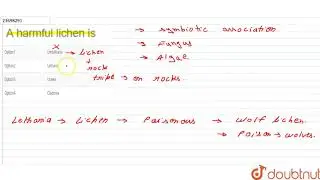 A harmful lichen is
→ symbiotic association
→ Fungus
→ Algae
Option1
x → Lichen
rock
tripe → on rocks.
Option2
Option3 Usnea
Option4
Lethania → Lichen → Poisonous → wolf lichen.
→ Poison → wolves.
doubtnut